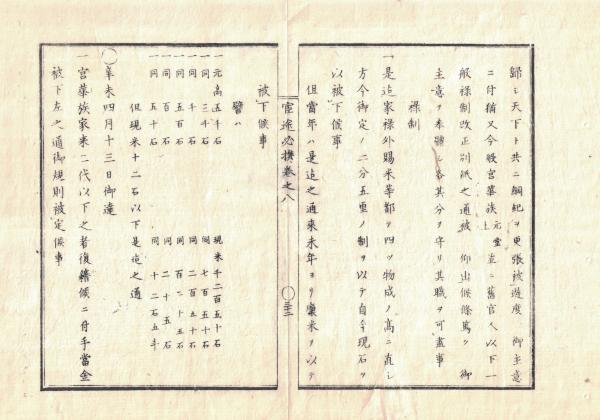 歸シ天下ト共ニ綱紀ヲ更張被遊度 御主意
ニ付猶又今般宮華族 元堂上 並ニ舊官人以下一
般祿制改正別紙之通被 仰出候條篤ク 御
主意ヲ奉體シ各其分ヲ守リ其職ヲ可盡事
祿制
一是迄家祿外賜米等都テ四ツ物成ノ高ニ直シ
方今御定ノ二分五厘ノ制ヲ以テ自今現石ヲ
以被下候事
但當年ハ是迄之通來未年ヨリ廩米ヲ以テ
宦途必携卷之八
三十二
被下候事
譬ハ
一元高五千石 現米千二百五十石
一同 三千石 同 七百五十石
一同 千石 同 二百五十石
一同 五百石 同 百二十五石
一同 百石 同 二十五石
一同 五十石 同 十二石五斗
但現米十二石以下是迄之通
○辛未四月十三日御達
一宮華族家來二代以下之者復籍候ニ付手當金
被下左之通御規則被定候事